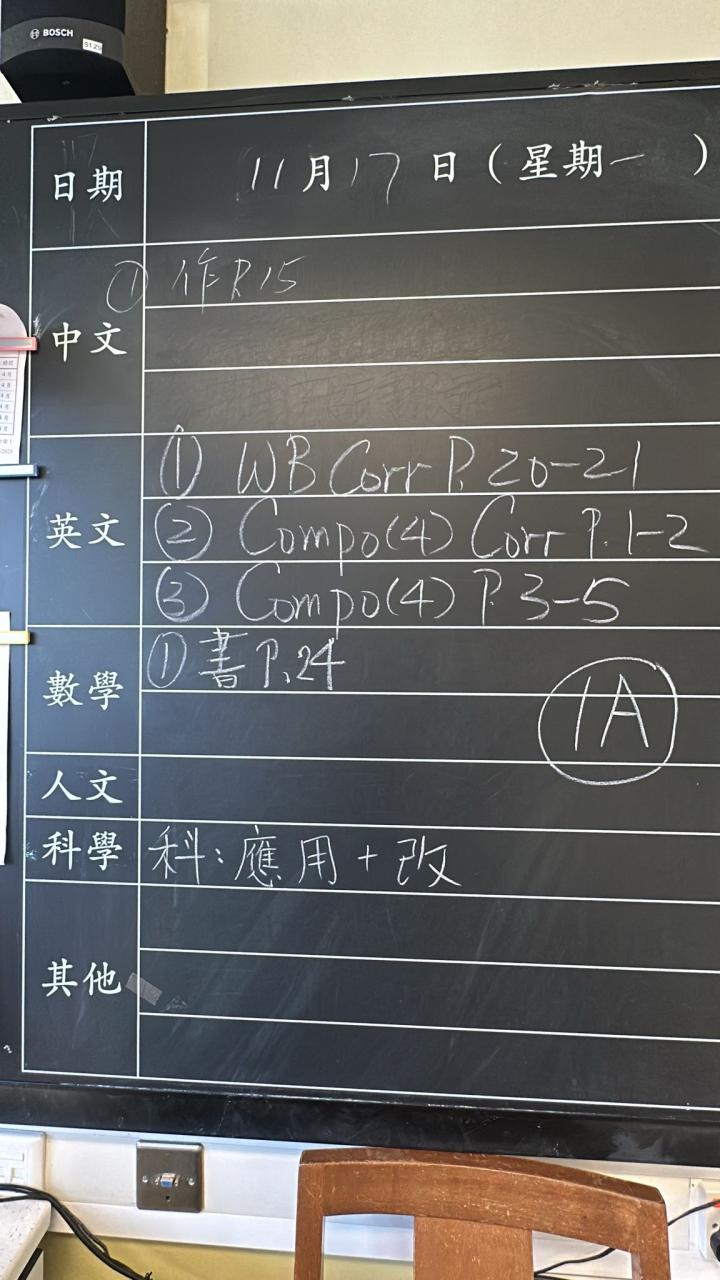 BOSCH
S1.29
日期 11月17日(星期一)
中文 ① 作P.15
英文 ① WB Corr P.20-21
② Compo(4) Corr P.1-2
③ Compo(4) P.3-5
數學 ① 書P.24
1A
人文
科學 科:應用+改
其他